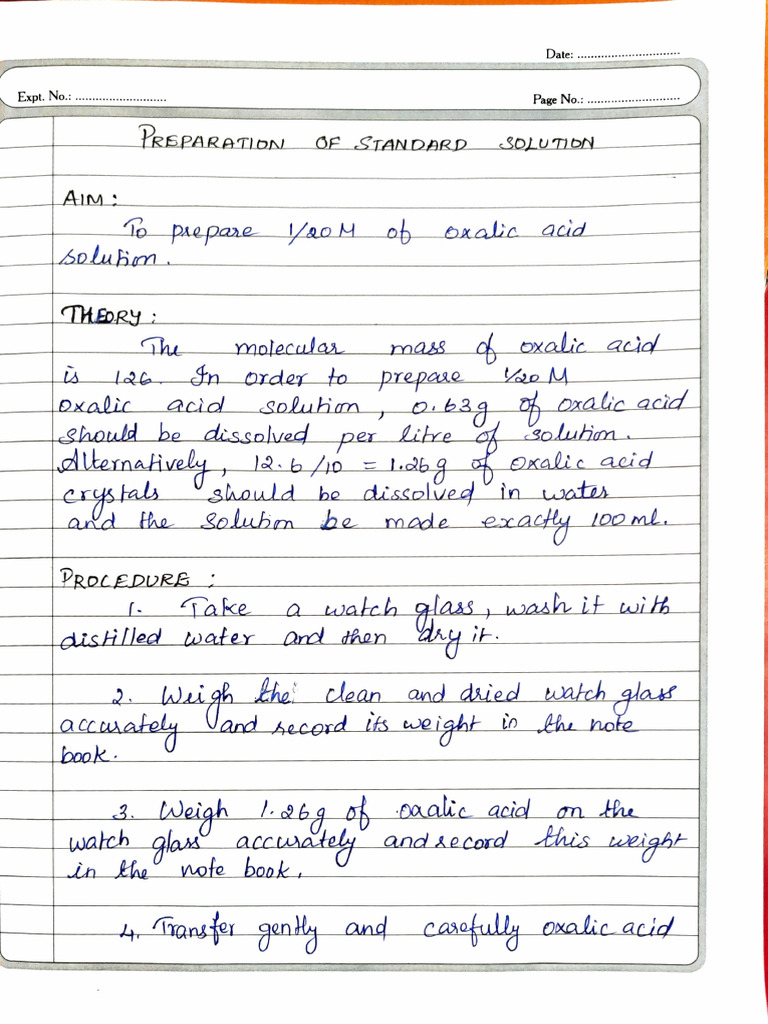 Date: ..............................
Expt. No.: ..........................
Page No.: ..........................
PREPARATION OF STANDARD SOLUTION
AIM :
To prepare 1/20 M of oxalic acid
solution.
THEORY :
The molecular mass of oxalic acid
is 126. In order to prepare 1/20 M
oxalic acid solution, 0.63g of oxalic acid
should be dissolved per litre of solution.
Alternatively, 12.6/10 = 1.26g of oxalic acid
crystals should be dissolved in water
and the solution be made exactly 100 ml.
PROCEDURE :
1. Take a watch glass, wash it with
distilled water and then dry it.
2. Weigh the clean and dried watch glass
accurately and record its weight in the note
book.
3. Weigh 1.26g of oxalic acid on the
watch glass accurately and record this weight
in the note book.
4. Transfer gently and carefully oxalic acid